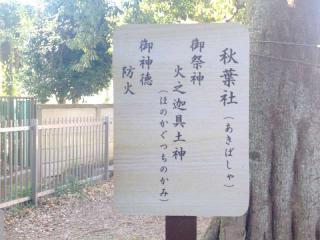 秋葉社（あきばしゃ）
御祭神
火之迦具土神
（ほのかぐつちのかみ）
御神徳
防火